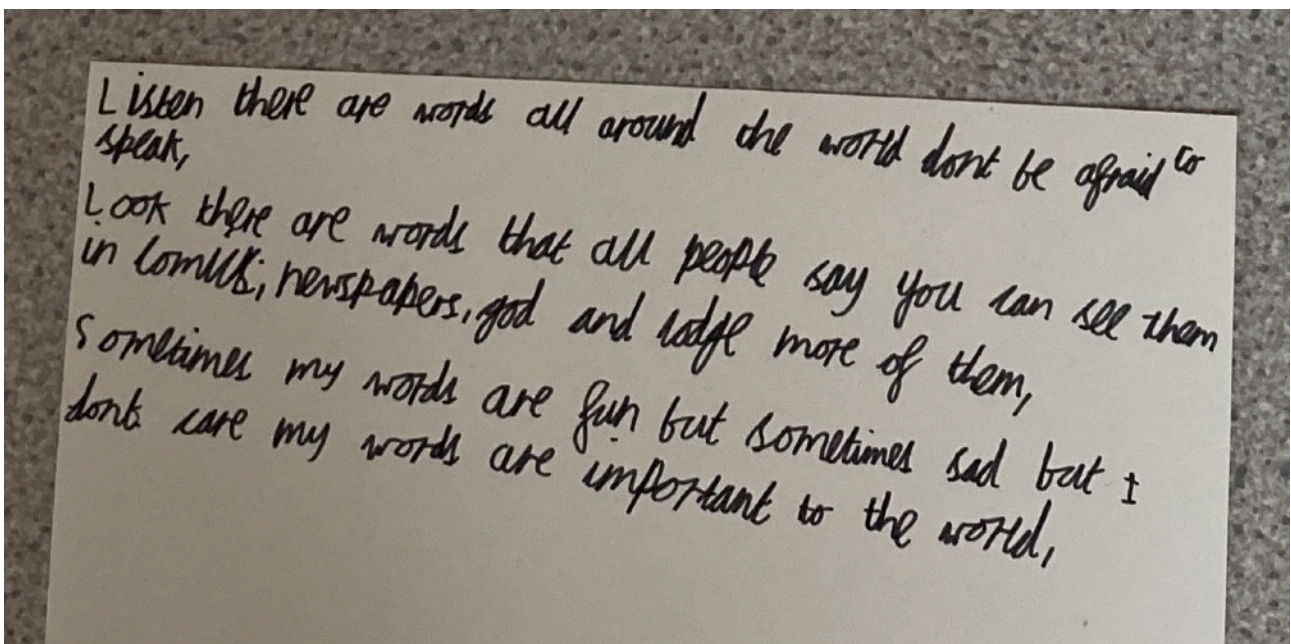 Listen there are words all around the world dont be afraid to
speak,
Look there are words that all people say you can see them
in comics, newspapers, god and more of them,
Sometimes my words are fun but sometimes sad but I
dont care my words are important to the world,